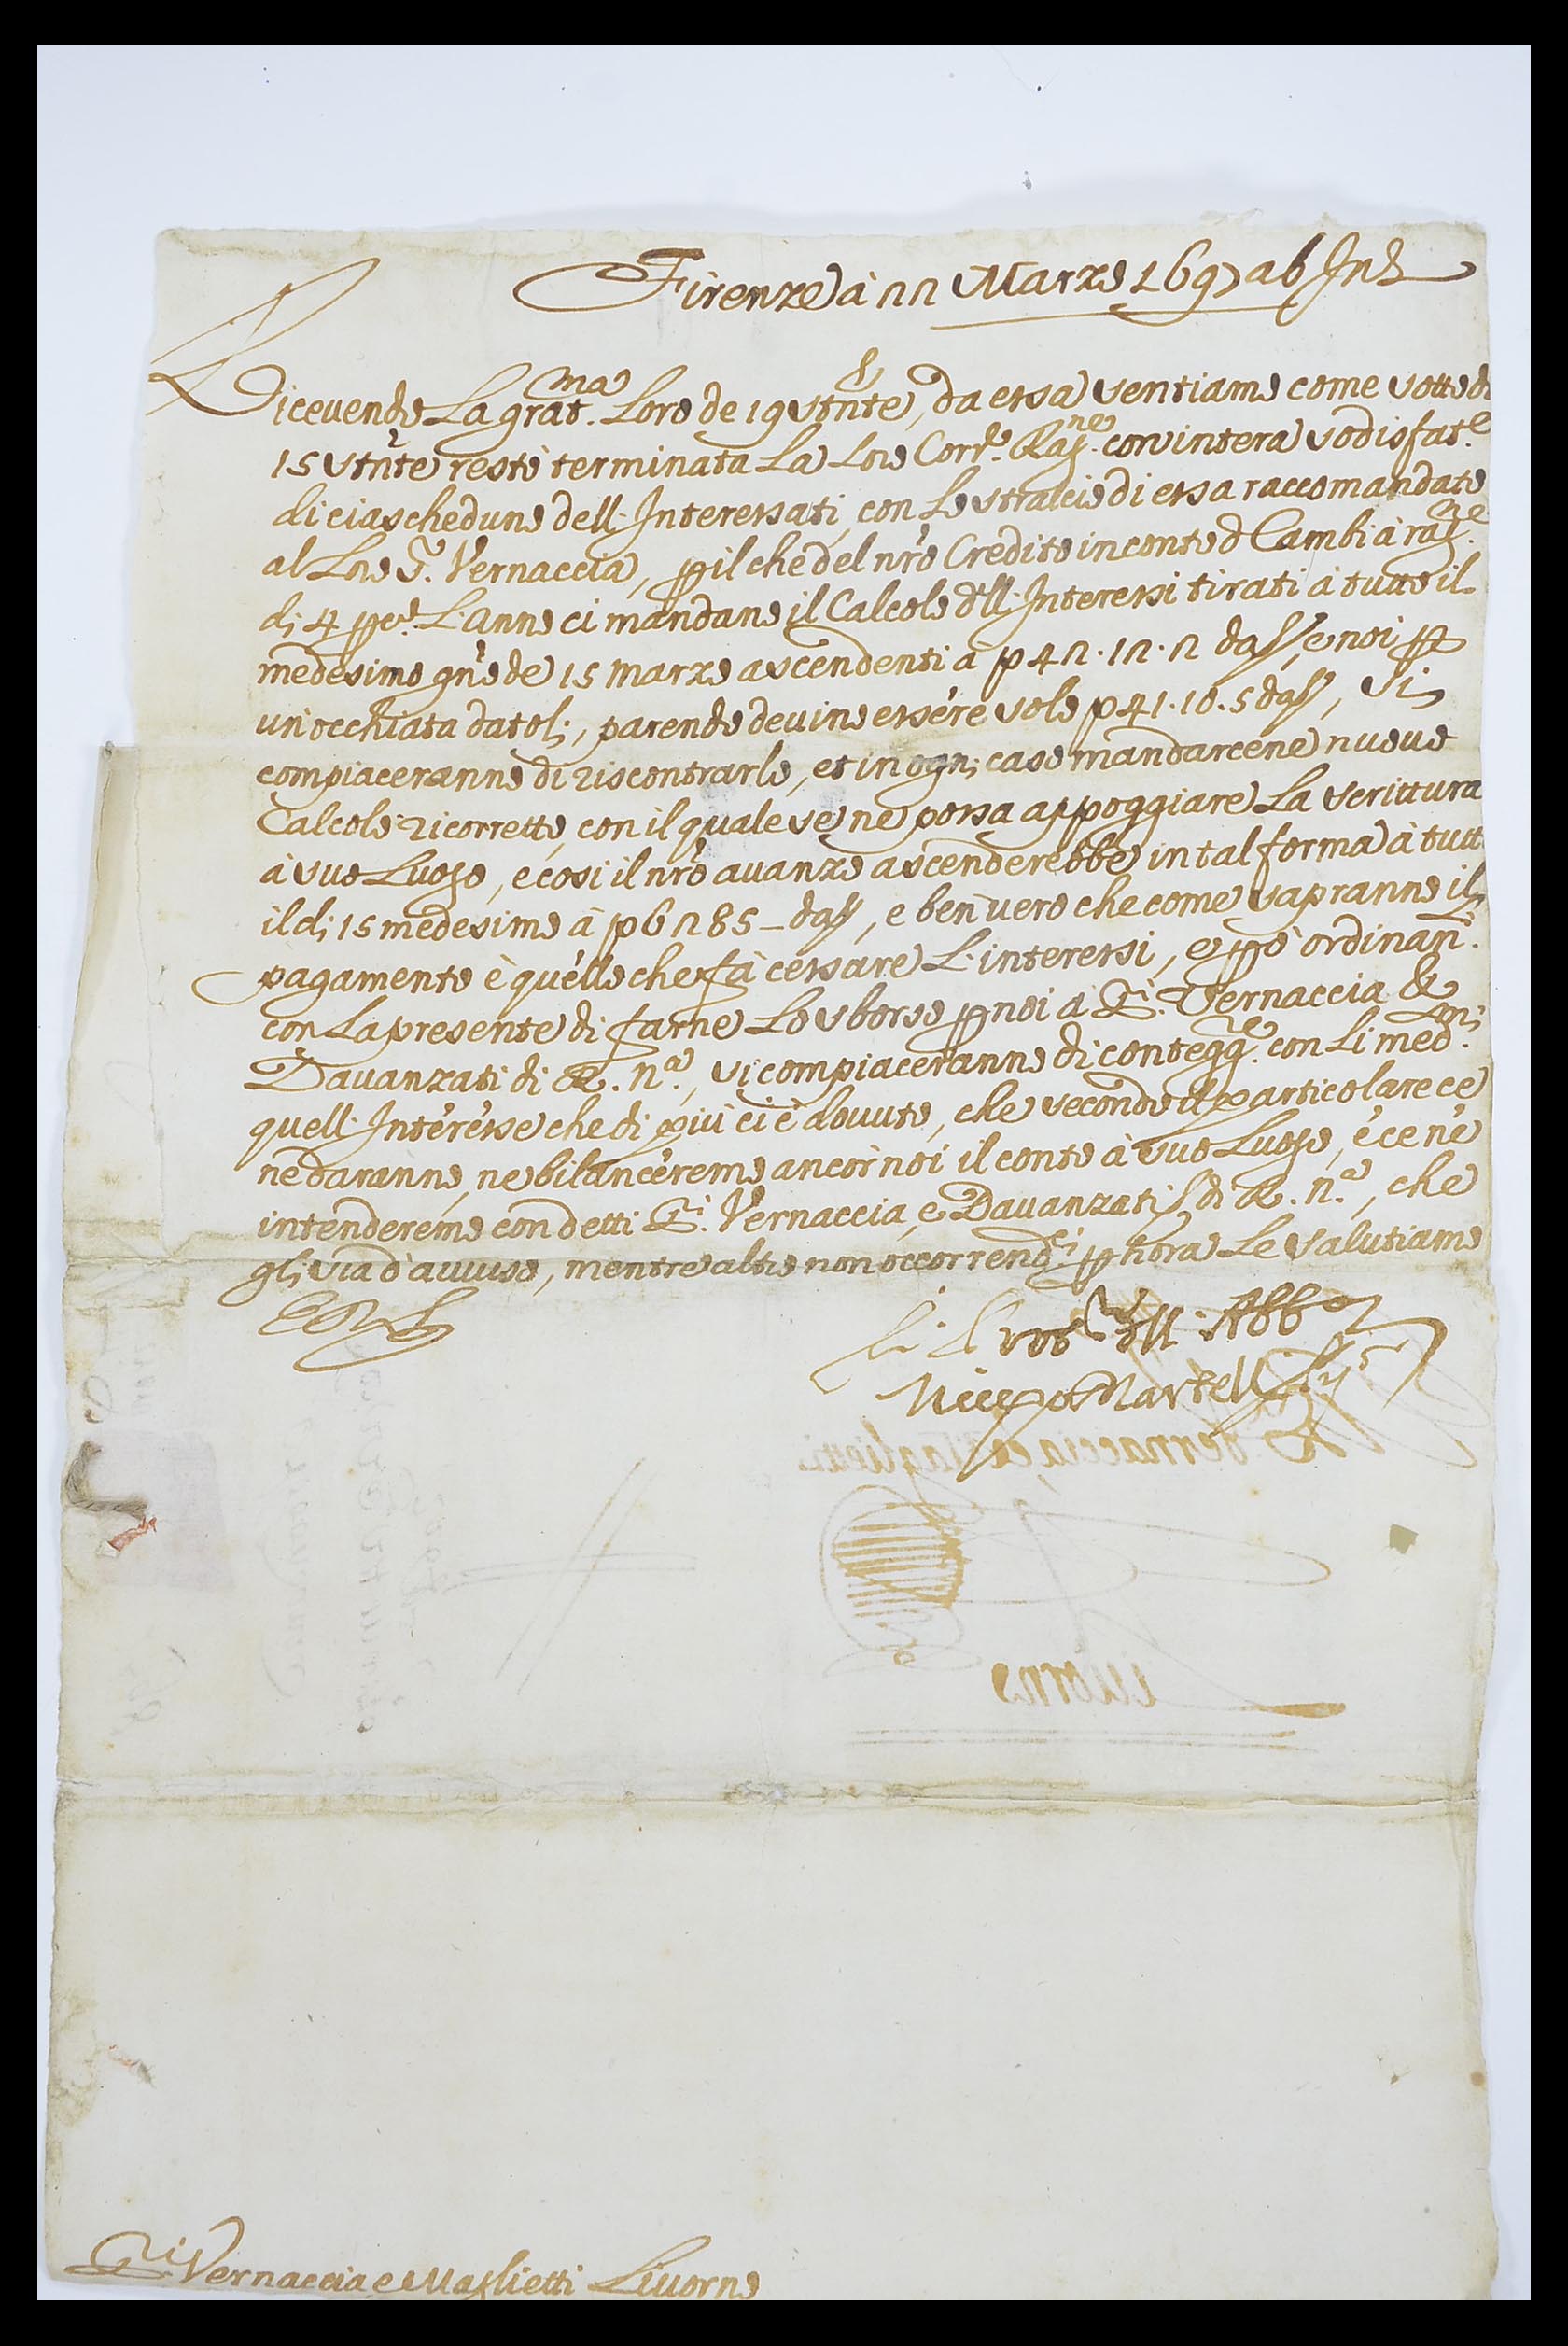 Firenze à 22 Marzo 1697 ab Inc
Ricevendo La grat.ma Loro de 19 stnte, da essa sentiamo come sotto di
15 stnte restò terminata La Loro Cord. Rag.ne con intera sodisfat.e
di ciascheduno dell. Interessati, con Lo stralcio di essa raccomandato
al Loro S. Vernaccia, p il che del nro Credito in conto d Cambi à rag.ne
di 4 p co. L'Anno ci mandano il Calcolo d'll. Interessi tirati à tutto il
medesimo gno de 15 Marzo ascendenti à p 42.12.2 da 8/, e noi p
un'occhiata datoli, parendo devino essere solo p 41.10.5 da 8/, si
compiaceranno di riscontrarlo, et in ogni caso mandarcene nuovo
Calcolo ricorretto, con il quale se ne possa appoggiare La scrittura
à suo Luogo, e così il nro avanzo ascenderebbe in tal forma à tutt
il di 15 medesimo à p 6285 - da 8/, e ben vero che come sapranno il
pagamento è quello che fà cessare L'interessi, e però ordinan.
con La presente di farne Lo sborso p noi a S.i Vernaccia &
Davanzati di R. n.a, si compiaceranno di contegg.re con Li med.mi
quell. Interesse che di più ci è dovuto, che secondo il particolare ce
ne daranno, ne bilanceremo ancor noi il conto à suo Luogo, e ce ne
intenderemo con detti S.i Vernaccia, e Davanzati di R. n.a, che
gli sia d'avviso, mentre altro non occorrendci p hora Le salutiamo
Nicc.o Martelli
Vernaccia, e Maglietti
Livorno
S.ri Vernaccia e Maglietti Livorno